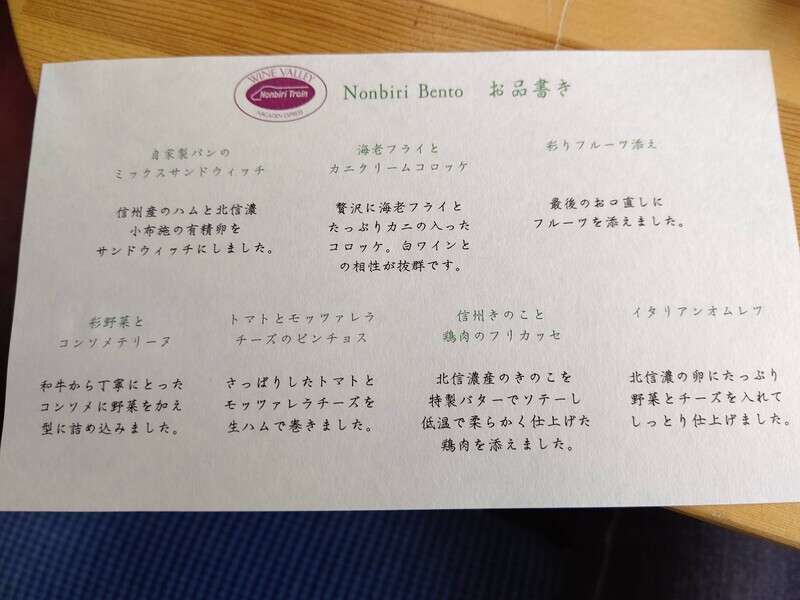 WINE VALLEY
Nonbiri Train
NAGADEN EXPRESS
Nonbiri Bento お品書き
自家製パンの
ミックスサンドウィッチ
信州産のハムと北信濃
小布施の有精卵を
サンドウィッチにしました。
海老フライと
カニクリームコロッケ
贅沢に海老フライと
たっぷりカニの入った
コロッケ。白ワインと
の相性が抜群です。
彩りフルーツ添え
最後のお口直しに
フルーツを添えました。
彩野菜と
コンソメテリーヌ
和牛から丁寧にとった
コンソメに野菜を加え
型に詰め込みました。
トマトとモッツァレラ
チーズのピンチョス
さっぱりしたトマトと
モッツァレラチーズを
生ハムで巻きました。
信州きのこと
鶏肉のフリカッセ
北信濃産のきのこを
特製バターでソテーし
低温で柔らかく仕上げた
鶏肉を添えました。
イタリアンオムレツ
北信濃の卵にたっぷり
野菜とチーズを入れて
しっとり仕上げました。